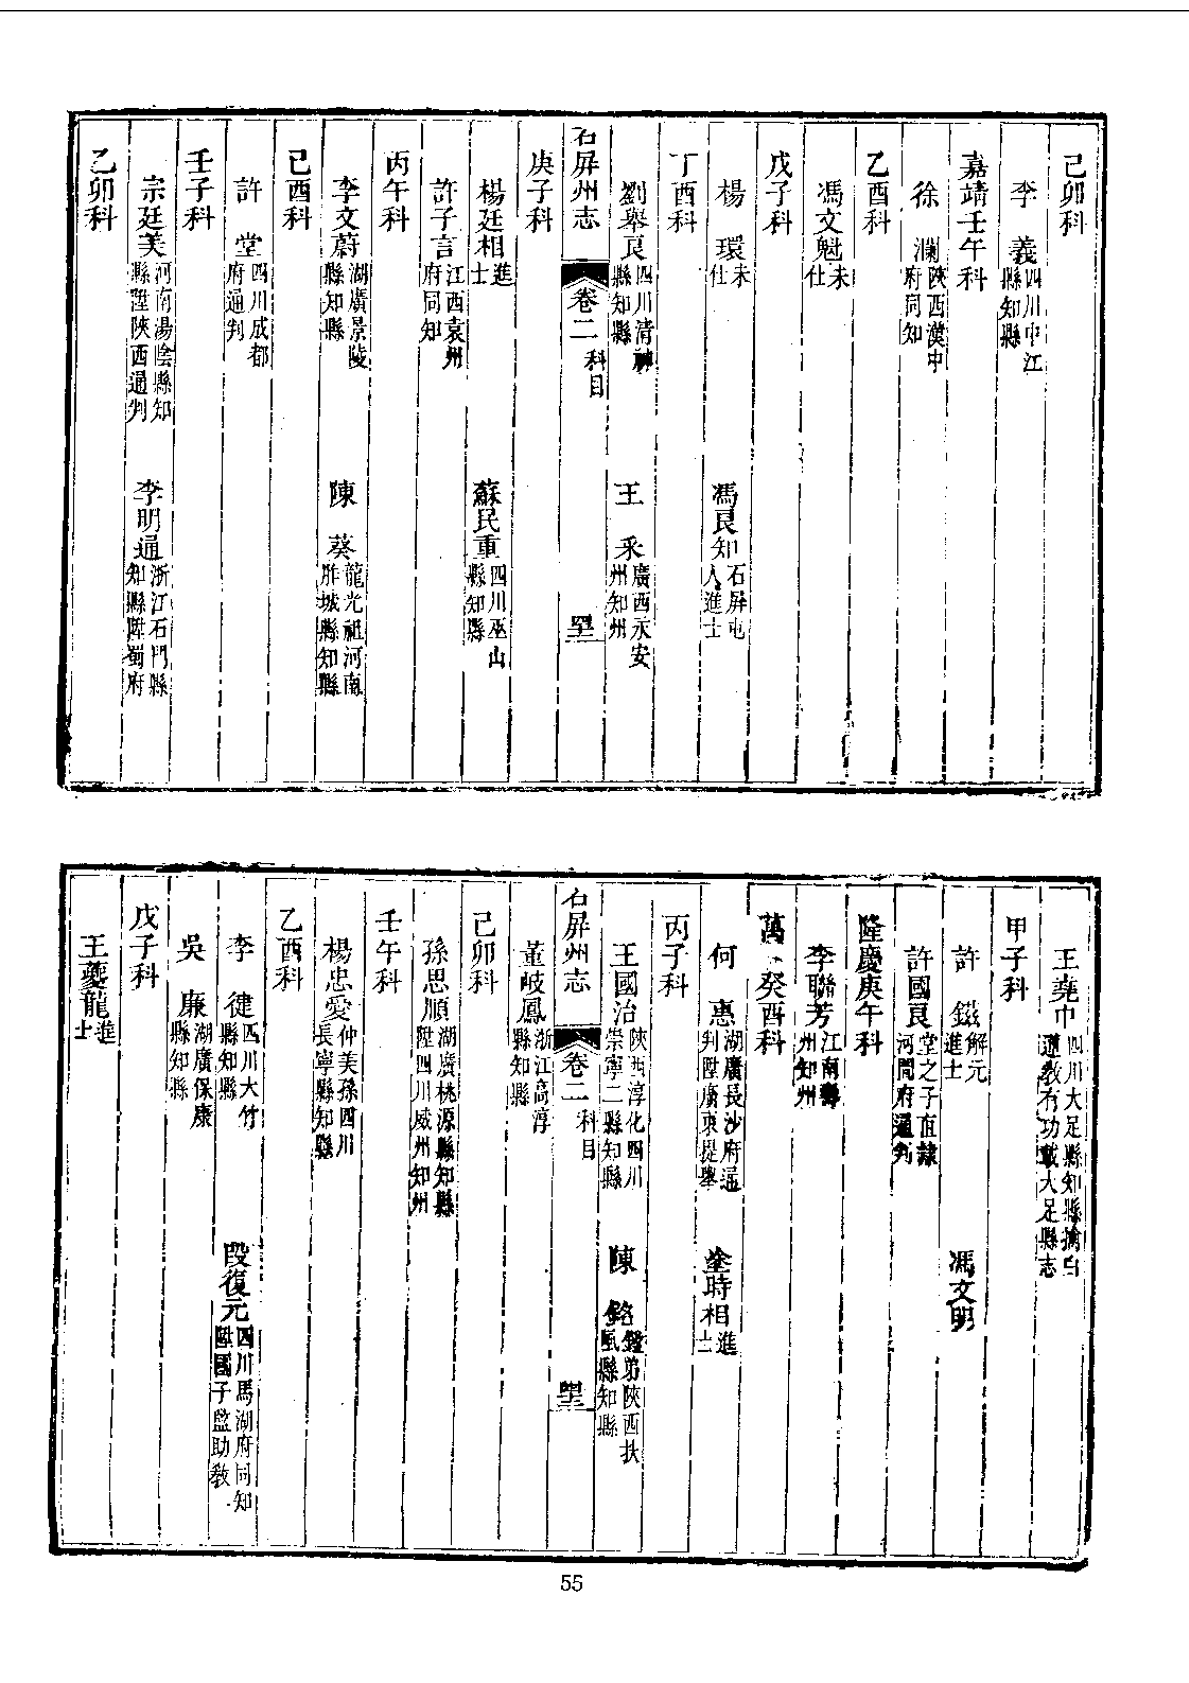 己卯科
李義四川中江縣知縣
嘉靖壬午科
徐瀾陝西漢中府同知
乙酉科
馮文魁未仕
戊子科
楊環未仕 馮良知石屏屯人進士
丁酉科
劉舉良四川清神縣知縣 王釆廣西永安州知州
石屏州志 卷二 科目
庚子科
楊廷相進士 蘇民重四川巫山縣知縣
許子言江西袁州府同知
丙午科
李文蔚湖廣景陵縣知縣 陳葵龍光祖河南胙城縣知縣
己酉科
許堂四川成都府通判
壬子科
宗廷美河南湯陰縣知縣陞陝西通判 李明通浙江石門縣知縣陞蜀府
乙卯科
王堯中四川大足縣知縣擒白蓮教有功載大足縣志
甲子科
許鎡解元進士 馮文明
許國良堂之子直隸河間府通判
隆慶庚午科
李聯芳江南州知州
萬癸酉科
何惠湖廣長沙府通判陞廣東提舉 塗時相進士
丙子科
王國治陝西淳化四川崇寧二縣知縣 陳銘鏜弟陝西扶風縣知縣
石屏州志 卷二 科目
董岐鳳浙江高淳縣知縣
己卯科
孫思順湖廣桃源縣知縣陞四川威州知州
壬午科
楊忠愛仲美孫四川長寧縣知縣
乙酉科
李徤四川大竹縣知縣 段復元四川馬湖府同知陞國子監助教
吳廉湖廣保康縣知縣
戊子科
王夔龍進士
55